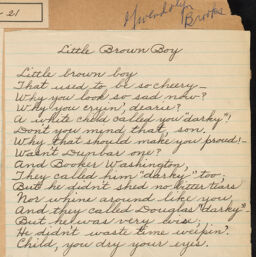 -21
Gwendolyn
Brooks
Little Brown Boy
Little brown boy
That used to be so cheery—
Why you look so sad now?
Why you cryin', dearie?
A white child called you "darky"!
Don't you mind that, son.
Why that should make you proud!—
Wasn't Dunbar one?
And Booker Washington,
They called him "darky" too;
But he didn't shed no bitter tears
Nor whine around like you.
And they called Douglas "darky"—
But he was very wise;
He didn't waste time weepin'.
Child, you dry your eyes.